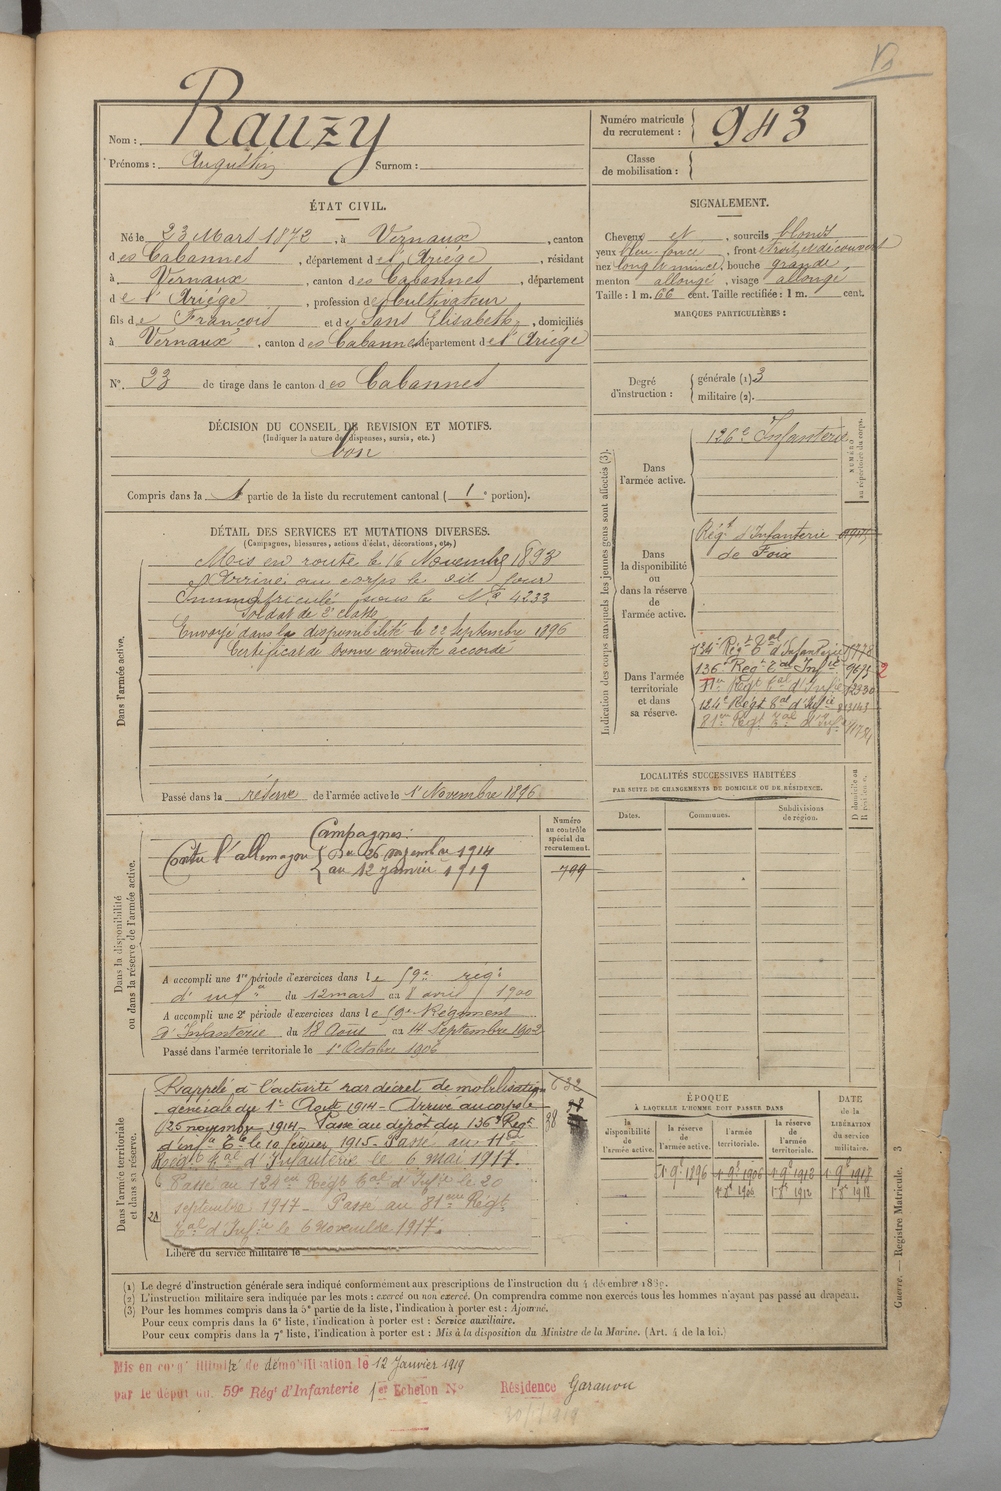 Nom : Rauzy
Prénoms : Augustin Surnom :
Numéro matricule du recrutement : 943
Classe de mobilisation :
ÉTAT CIVIL.
Né le 23 Mars 1872, à Vernaux, canton
des Cabannes, département de l'Ariège, résidant
à Vernaux, canton des Cabannes, département
de l'Ariège, profession de Cultivateur,
fils de François et de Sans Elisabeth, domiciliés
à Vernaux, canton des Cabannes, département de l'Ariège
N° 23 de tirage dans le canton des Cabannes
DÉCISION DU CONSEIL DE REVISION ET MOTIFS.
(Indiquer la nature des dispenses, sursis, etc.)
bon
Compris dans la 1 partie de la liste du recrutement cantonal ( 1e portion).
DÉTAIL DES SERVICES ET MUTATIONS DIVERSES.
(Campagnes, blessures, actions d'éclat, décorations, etc.)
Dans l'armée active.
Mis en route le 16 Novembre 1893
Arrivé au corps le dit jour
Immatriculé sous le N° 4233
Soldat de 2e classe
Envoyé dans la disponibilité le 22 Septembre 1896
Certificat de bonne conduite accordé
Passé dans la réserve de l'armée active le 1r Novembre 1896
Dans la disponibilité ou dans la réserve de l'armée active.
Campagnes :
Contre l'allemagne { Du 26 novembre 1914
au 12 janvier 1919
Numéro au contrôle spécial du recrutement.
799
A accompli une 1re période d'exercices dans le 59e régt
d'infie du 12 mars au 8 avril 1900
A accompli une 2e période d'exercices dans le 59e Régiment
d'Infanterie du 18 Août au 14 Septembre 1902
Passé dans l'armée territoriale le 1r Octobre 1906
Dans l'armée territoriale et dans sa réserve.
Rappelé à l'activité par décret de mobilisation
générale du 1er Août 1914 - Arrivé au corps le
25 novembre 1914 - Passé au dépôt du 136e Régt
d'infie Tle le 10 février 1915. Passé au 11e
Régt Tal d'Infanterie le 6 mai 1917.
Passé au 124eme Régt Tal d'Infie le 20
septembre 1917 - Passé au 81eme Régt
Tal d'Infie le 6 novembre 1917.
Libéré du service militaire le
SIGNALEMENT.
Cheveux et , sourcils blonds
yeux bleu foncé , front étroit et découvert
nez long et mince, bouche grande,
menton allongé , visage allongé
Taille : 1 m. 66 cent. Taille rectifiée : 1 m. cent.
MARQUES PARTICULIÈRES :
Degré d'instruction : générale (1) 3
militaire (2).
Indication des corps auxquels les jeunes gens sont affectés (3).
NUMÉRO au répertoire du corps.
Dans l'armée active.
126e Infanterie
Dans la disponibilité ou dans la réserve de l'armée active.
Régt d'Infanterie
de Foix
Dans l'armée territoriale et dans sa réserve.
134e Régt Tal d'Infanterie
136e Régt Tal Infie 9675
11e Régt Tal d'Infie 12330
124e Régt Tal d'Infie
81em Régt Tal d'Infie
LOCALITÉS SUCCESSIVES HABITÉES
PAR SUITE DE CHANGEMENTS DE DOMICILE OU DE RÉSIDENCE.
Dates. Communes. Subdivisions de région. D domicile ou R résidence.
ÉPOQUE
À LAQUELLE L'HOMME DOIT PASSER DANS
DATE de la LIBÉRATION du service militaire.
la disponibilité de l'armée active.
la réserve de l'armée active.
l'armée territoriale.
la réserve de l'armée territoriale.
1r 9e 1896 1r 9e 1906 1r 9e 1912 1r 9e 1918
1r 8e 1906 1r 8e 1912 1r 8e 1918
(1) Le degré d'instruction générale sera indiqué conformément aux prescriptions de l'instruction du 4 décembre 1889.
(2) L'instruction militaire sera indiquée par les mots : exercé ou non exercé. On comprendra comme non exercés tous les hommes n'ayant pas passé au drapeau.
(3) Pour les hommes compris dans la 5e partie de la liste, l'indication à porter est : Ajourné.
Pour ceux compris dans la 6e liste, l'indication à porter est : Service auxiliaire.
Pour ceux compris dans la 7e liste, l'indication à porter est : Mis à la disposition du Ministre de la Marine. (Art. 4 de la loi.)
Guerre. — Registre Matricule. 3
Mis en congé illimité de démobilisation le 12 Janvier 1919
par le dépôt du 59e Régt d'Infanterie 1er Echelon N° Résidence Garanou